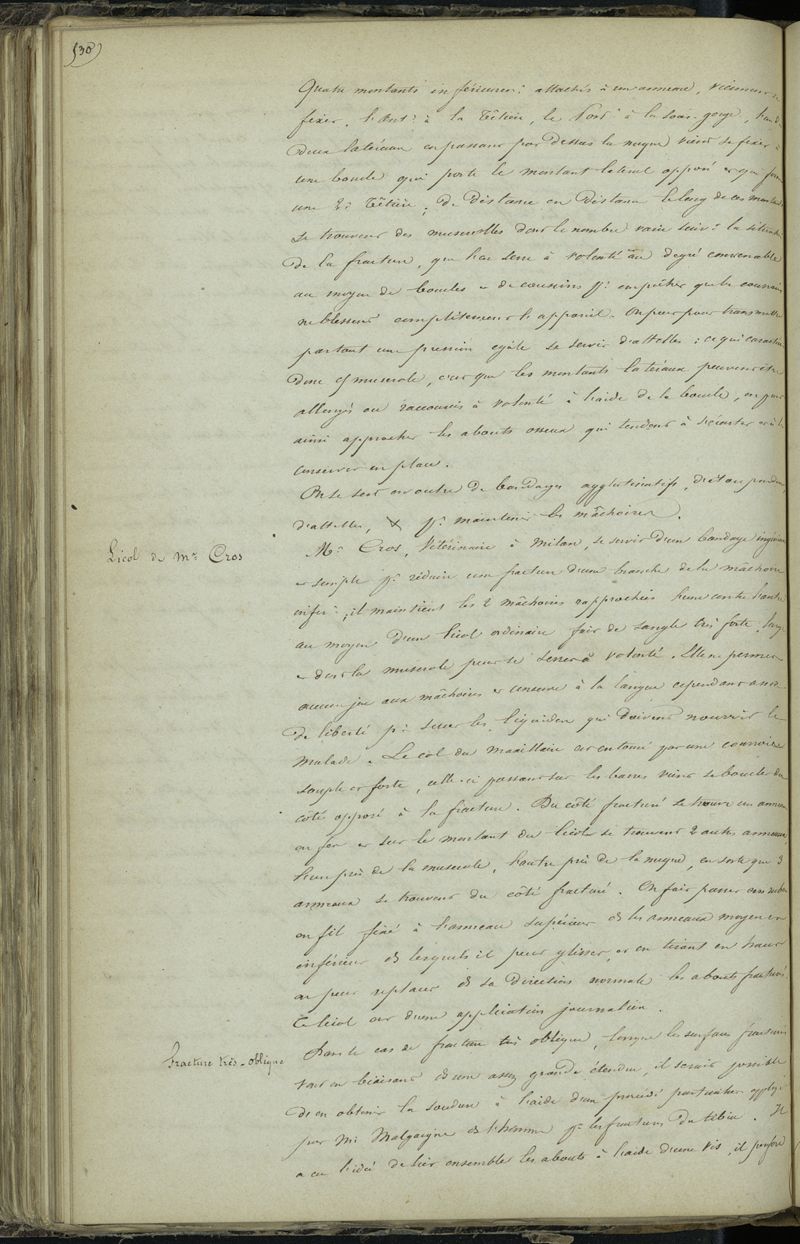 (30)
Quatre montants inférieurs attachés à un anneau, viennent se
fixer, l'ant: à la têtière, le post: à la sous-gorge, les
deux latéraux en passant par dessus la nuque vient se fixer à
une boucle qui porte le montant latéral opposé et qui forme
une 2e têtière. De distance en distance le long de ces montants
se trouvent des muserolles dont le nombre varie suivt la situation
de la fracture, que l'on serre à volonté au degré convenable
au moyen de boucles et de coussins pr empêcher que les courroies
ne blessent complètement l'appareil. On peut pour transmettre
partout une pression égale se servir d'attelles : ce qui caractérise
donc cette muserole, c'est que les montants latéraux peuvent être
allongés ou raccourcis à volonté à l'aide de la boucle, on peut
ainsi approcher les abouts osseux qui tendent à s'écarter et à les
conserver en place.
On se sert en outre de bandages agglutinatifs, d'étoupes
d'attelles, pr maintenir les mâchoires.
Licol de Mr Cros
Mr Cros, Vétérinaire à Milan, se servit d'un bandage ingénieux
et simple pr réduire une fracture d'une branche de la mâchoire
infér:, il maintient les 2 mâchoires rapprochées l'une contre l'autre
au moyen d'un licol ordinaire fait de sangle très forte, large
et dont la muserole peut se serrer à volonté. Elle ne permet
aucun jeu aux mâchoires et conserve à la langue cependant assez
de liberté pr sucer les liquides qui doivent nourrir le
malade. Le col du maxillaire est entouré par une courroie
souple et forte, celle-ci passant sur les barres vient se boucler du
côté opposé à la fracture. Du côté fracturé se trouve un anneau
en fer et sur le montant du licol se trouvent 2 autres anneaux,
l'un près de la muserole, l'autre près de la nuque, en sorte que 3
anneaux se trouvent du côté fracturé. On fait passer un ruban
en fil fixé à l'anneau supérieur ds les anneaux moyen et
inférieur ds lesquels il peut glisser, et en tirant en haut
on peut replacer ds sa direction normale les abouts fracturés.
Ce licol est d'une application journalière.
Fracture très-oblique
Dans le cas de fracture très oblique, lorsque les surfaces fracturées
vont en biaisant ds une assez grande étendue, il serait possible
d'en obtenir la soudure à l'aide d'un procédé particulier appliqué
par Mr Malgaigne ds l'homme pr les fractures du tibia. Il
a eu l'idée de lier ensemble les abouts à l'aide d'une vis, il perfore